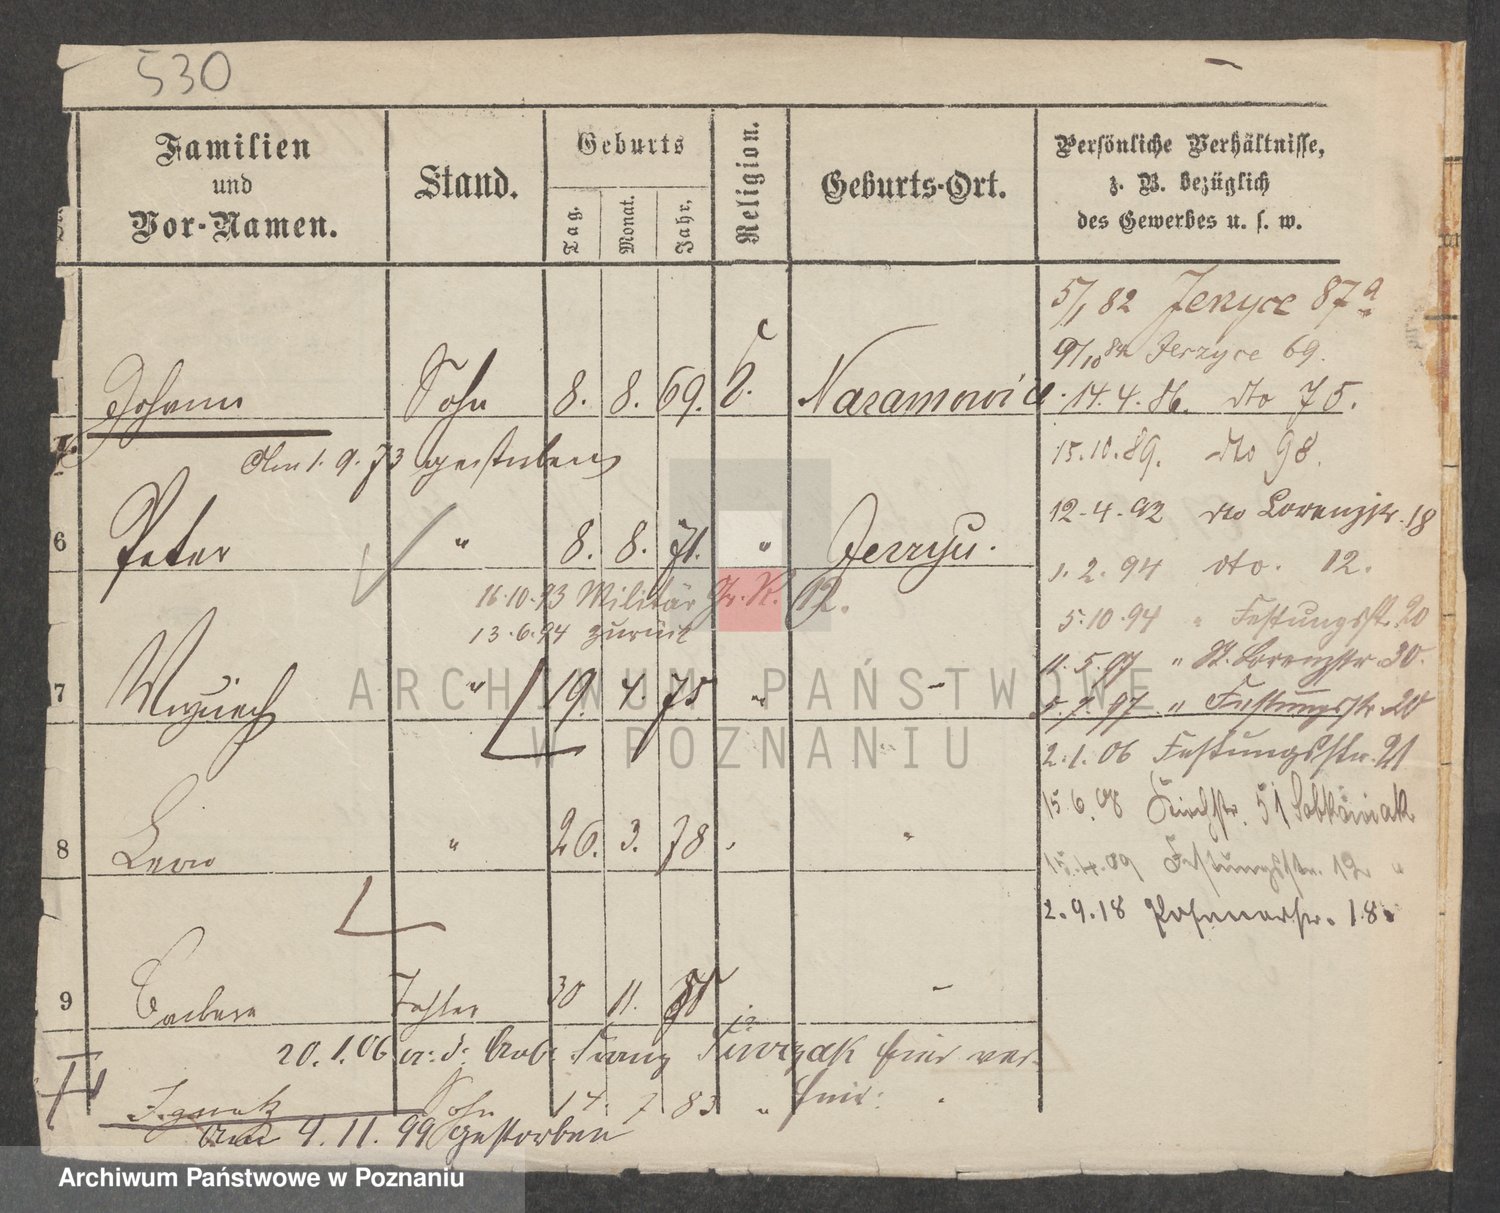 530
Familien
und
Vor-Namen.
Stand.
Geburts
Tag.
Monat.
Jahr.
Religion.
Geburts-Ort.
Persönliche Verhältnisse,
z. B. bezüglich
des Gewerbes u. s. w.
5/1 82 Jerzyce 87a
9/10 Jerzyce 69.
Johann Sohn 8. 8. 69. Naramowice
14.4.86. dto 75.
Am 1.9.73 gestorben
15.10.89. dto 98.
12.4.92 dto Lorenzstr. 18
6 Peter " 8. 8. 71. " Jerzyce.
1.2.94 dto. 12.
16.10.93 Militär Gr. R. 12.
13.6.94 zurück
5.10.94 " Festungsstr. 20
11.5.97 " St. Lorenzstr. 30.
7 " 19. 4. 75 " –
5.7.97. " Festungsstr. 20
2.1.06 Festungsstr. 21
15.6.08 Kirchstr. 51
8 Leon " 26. 3. 78 " "
15.4.09 Festungsstr. 12 "
2.9.18 Posenerstr. 18.
9 Barbara Tochter 30 11. –
20.1.06 Franz
Ignatz Sohn 14. 7 83 "
Am 4.11.99 gestorben
ARCHIWUM PAŃSTWOWE
W POZNANIU
Archiwum Państwowe w Poznaniu